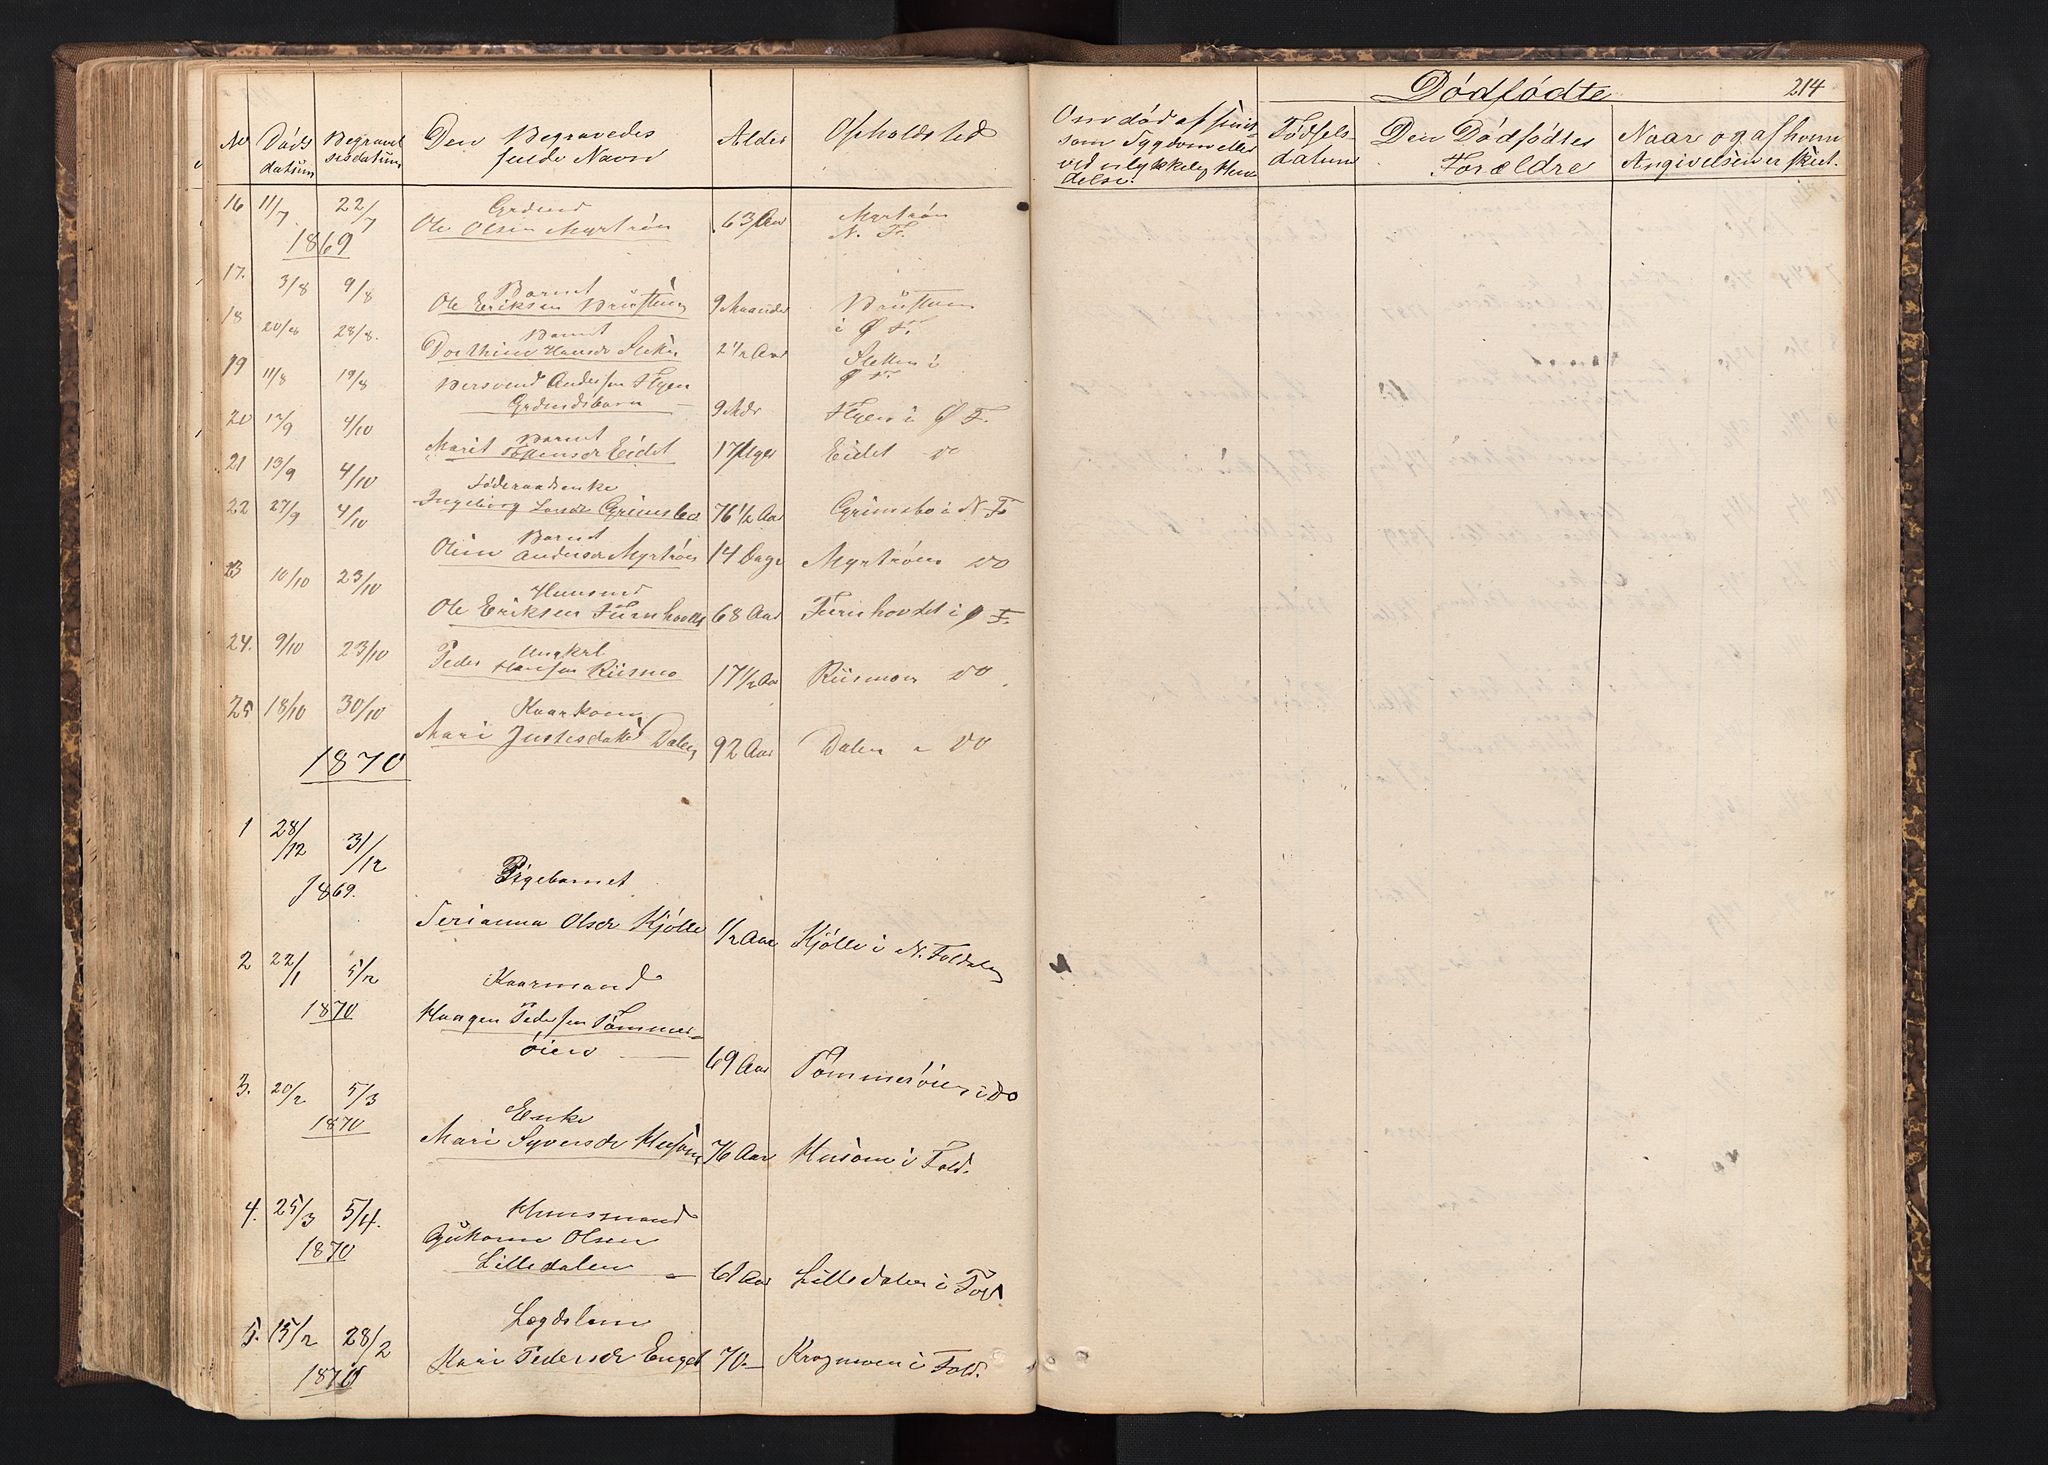 No Døds datum Begravelsesdatum Den Begravedes fulde Navn Alder Opholdsted
Om død af smitsom Sygdom eller ved ulykkelig Hændelse.
Dødfødte
214
Fødselsdatum Den Dødfødtes Forældre Naar og af hvem Angivelsen er skeet.
16 11/7 22/7 Grdmd
1869 Ole Olsen Myrtrøn 63 Aar Myrtrøn N. F.
17. 3/8 9/8 Barnet
Ole Eriksen 9 Maaneder i Ø F.
18 20/8 28/8. Barnet
Dorthine Hansdr 2½ Aar i Ø F.
19 11/8 19/8 Andersen
Grdmdsbarn 9 Mdr i Ø F.
20 17/9 4/10 Barnet
Marit Eidet 17 Uger Eidet do
21 13/9 4/10 Føderaadsenke
Ingeborg Grimsbo 76½ Aar Grimsbo i N F
22 27/9 4/10 Barnet
Oline Andersdr Myrtrøen 14 Dage Myrtrøen do
23 10/10 23/10 Huusmd
Ole Eriksen 68 Aar i Ø F.
24. 9/10 23/10 Ungkrl
Peder Hansen Riismo 17½ Aar Riismoen do
25 18/10 30/10 Kaarkone
Mari Dalen 92 Aar Dalen - do
1870
1 28/12 31/12
1869. Pigebarnet
Olsdr Kjølle ½ Aar Kjølle i N. Foldalen
2 22/1 5/2 Kaarmand
1870 Haagen Pedersen Tømmerøien 69 Aar Tømmerøien i do
3. 20/2 5/3 Enke
1870 Mari Syversdr Husom 76 Aar Husom i Fold.
4. 25/3 5/4. Huusmand
1870 Olsen
Lilledalen 61 Aar Lilledalen i Fold
5. 15/2 28/2 Lægdslem
1870 Kari Pedersdr Enget 70 - Krogmoen i Fold.